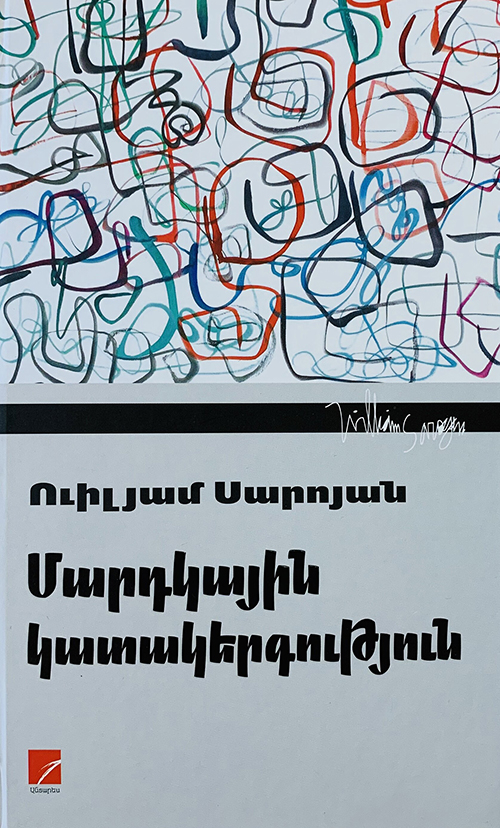 William Saroyan
Ուիլյամ Սարոյան
Մարդկային
կատակերգություն
Անտարես